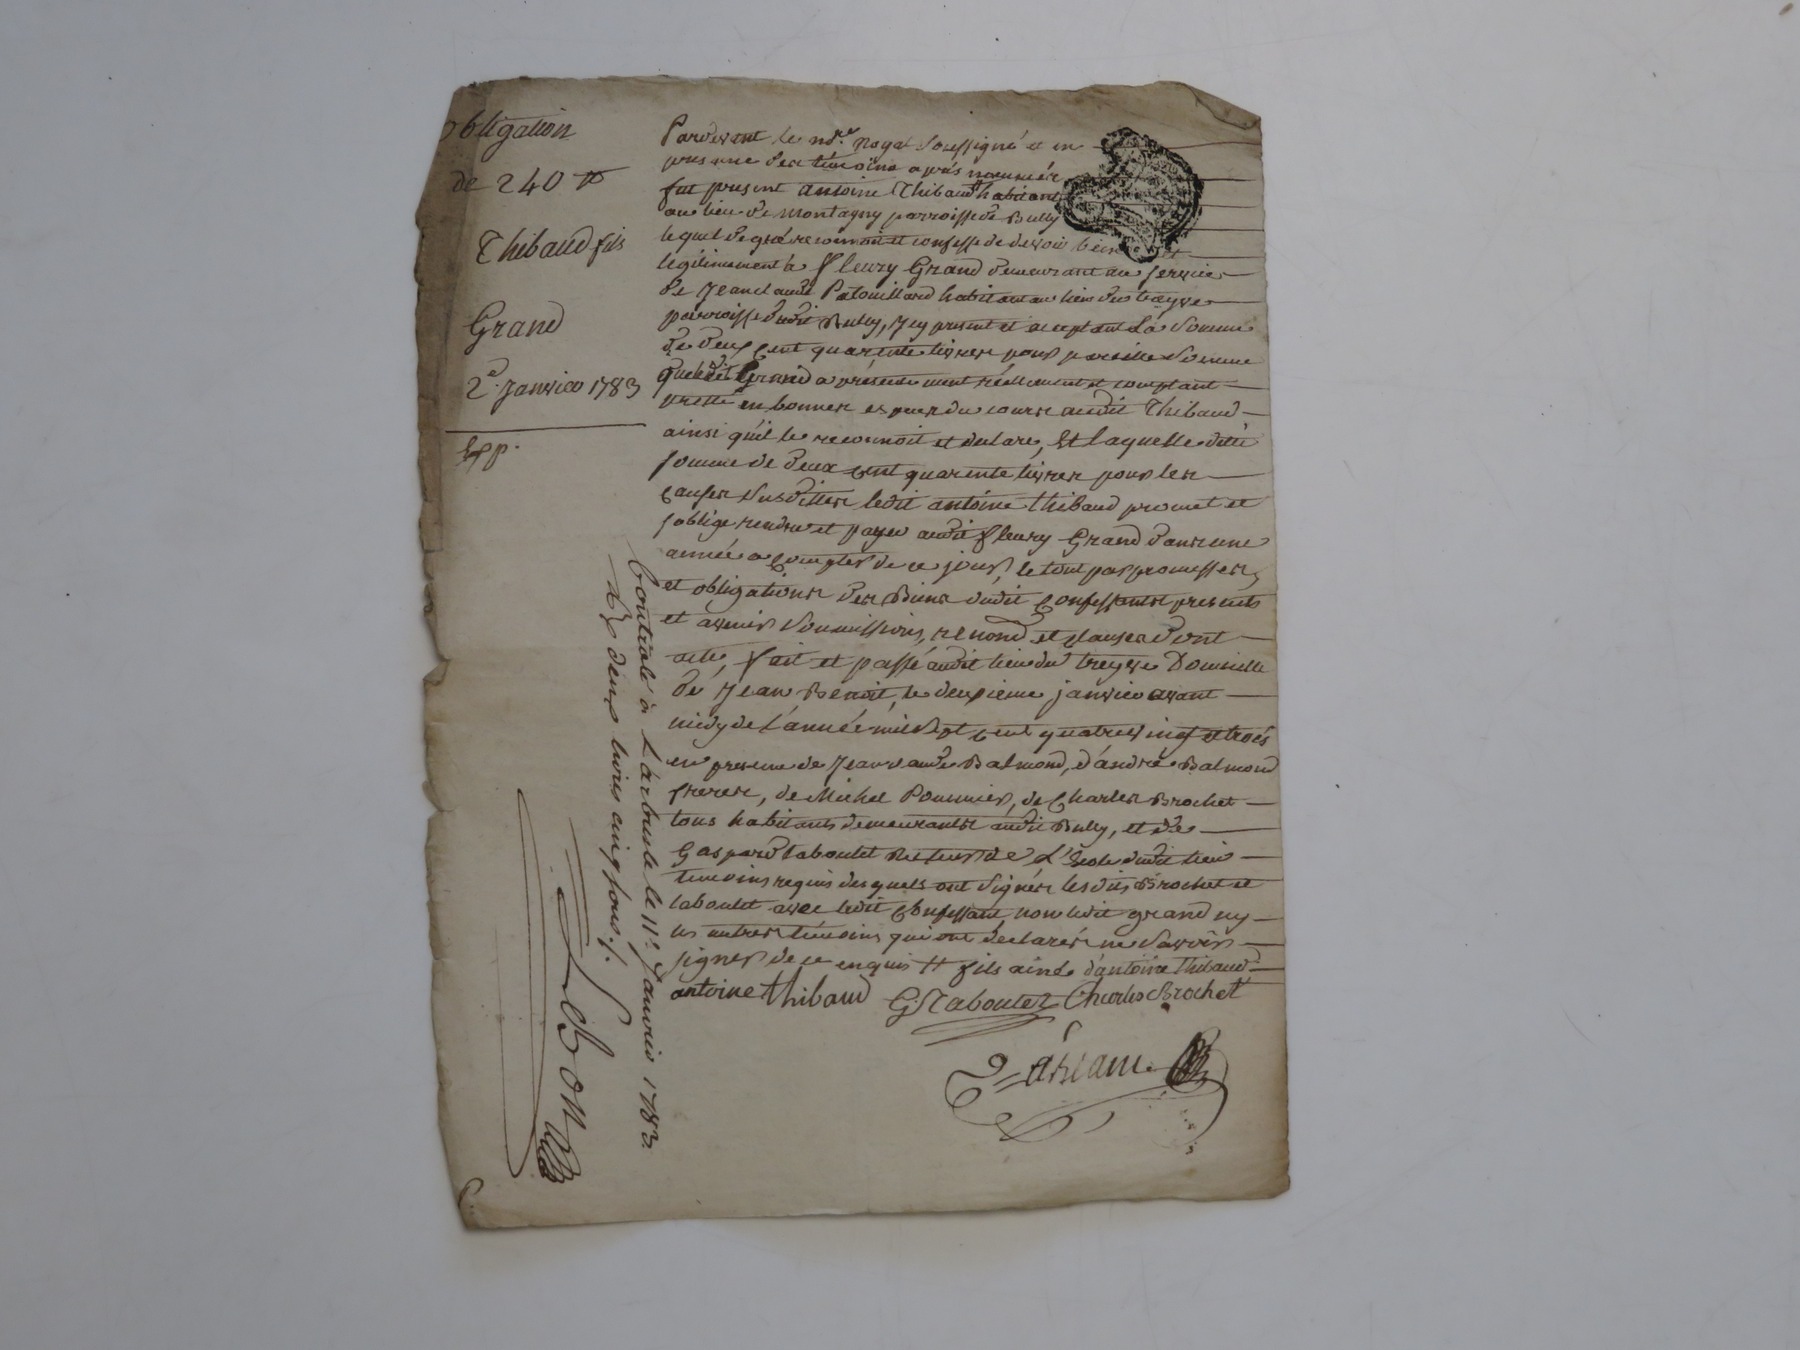 Obligation
de 240 ₶
Thibaud fils
Grand
2e. Janvier 1783
Exp.
Pardevant le nore. royal soussigné et en
presence des témoins après nommés
fut present antoine Thibaud habitant
au lieu de Montagny parroisse de Bully
lequel de gré reconnoit et confesse de devoir bien et
légitimement à fleury Grand demeurant au service
de Jeanclaude Patouillard habitant au lieu du treyve
parroisse dudit Bully, icy present et acceptant La Somme
de deux cent quarente livres pour pareille Somme
que ledit Grand a présentement réellement et comptant
presté en bonnes espèces du cours audit Thibaud
ainsi qu'il le reconnoit et declare, Et Laquelle ditte
somme de deux cent quarente livres pour les
causes Susdittes ledit antoine Thibaud promet et
s'oblige rendre et payer audit fleury Grand dans une
année a compter de ce jour, le tout par promesses,
et obligations des Biens dudit Confessant presents
et avenir Soumissions, renond. et clauses dont
acte, fait et passé audit lieu du treyve Domicille
de Jean Benoit, le deuxieme janvier avant
midy de L'année mil Sept cent quatre vingt et trois
en presence de Jeanclaude Balmond, d'andré Balmond
freres, de Michel Pommier, de Charles Brochet
tous habitants demeurants audit Bully, et de
Gaspard taboulet Recteur de L'École dudit lieu
temoins requis desquels ont Signés lesdits Brochet et
taboulet avec ledit Confessant, non ledit grand ny
les autres témoins qui ont déclarés ne Savoir
signer de ce enquis # fils ainé d'antoine Thibaud
antoine thibaud G. Taboulet Charles Brochet
Contrôlé à L'arbresle le 11e. Janvier 1783
R. deux livres cinq sous ./.
LeBon